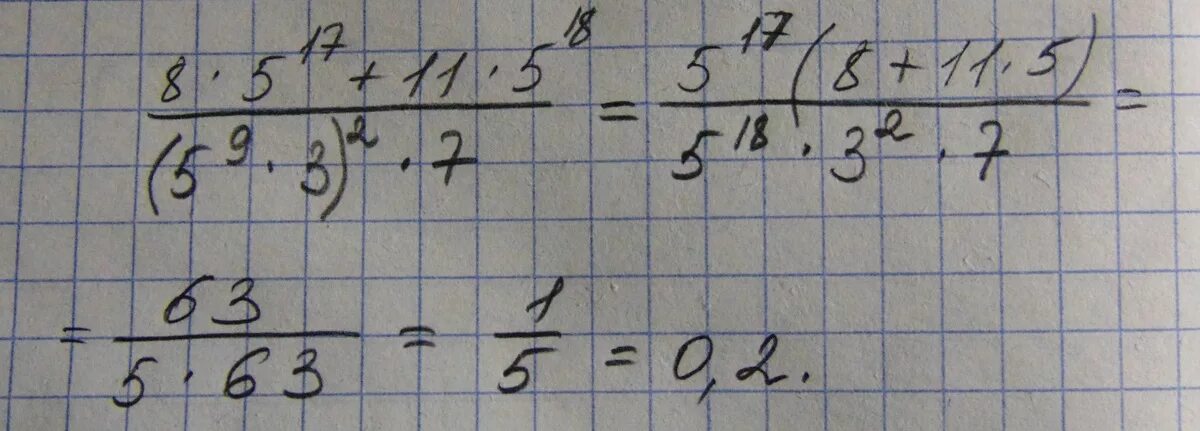 (8 · 5^17 + 11 · 5^18) / ((5^9 · 3)^2 · 7) = (5^17 (8 + 11 · 5)) / (5^18 · 3^2 · 7) =
= 63 / (5 · 63) = 1/5 = 0,2.